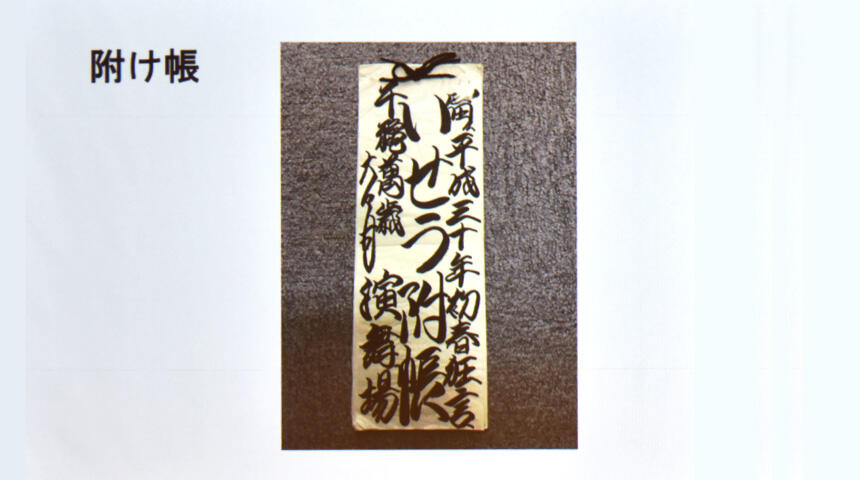 附け帳
平成三十年初春狂言
いせう附帳
千穐萬歳
大々叶
演舞場